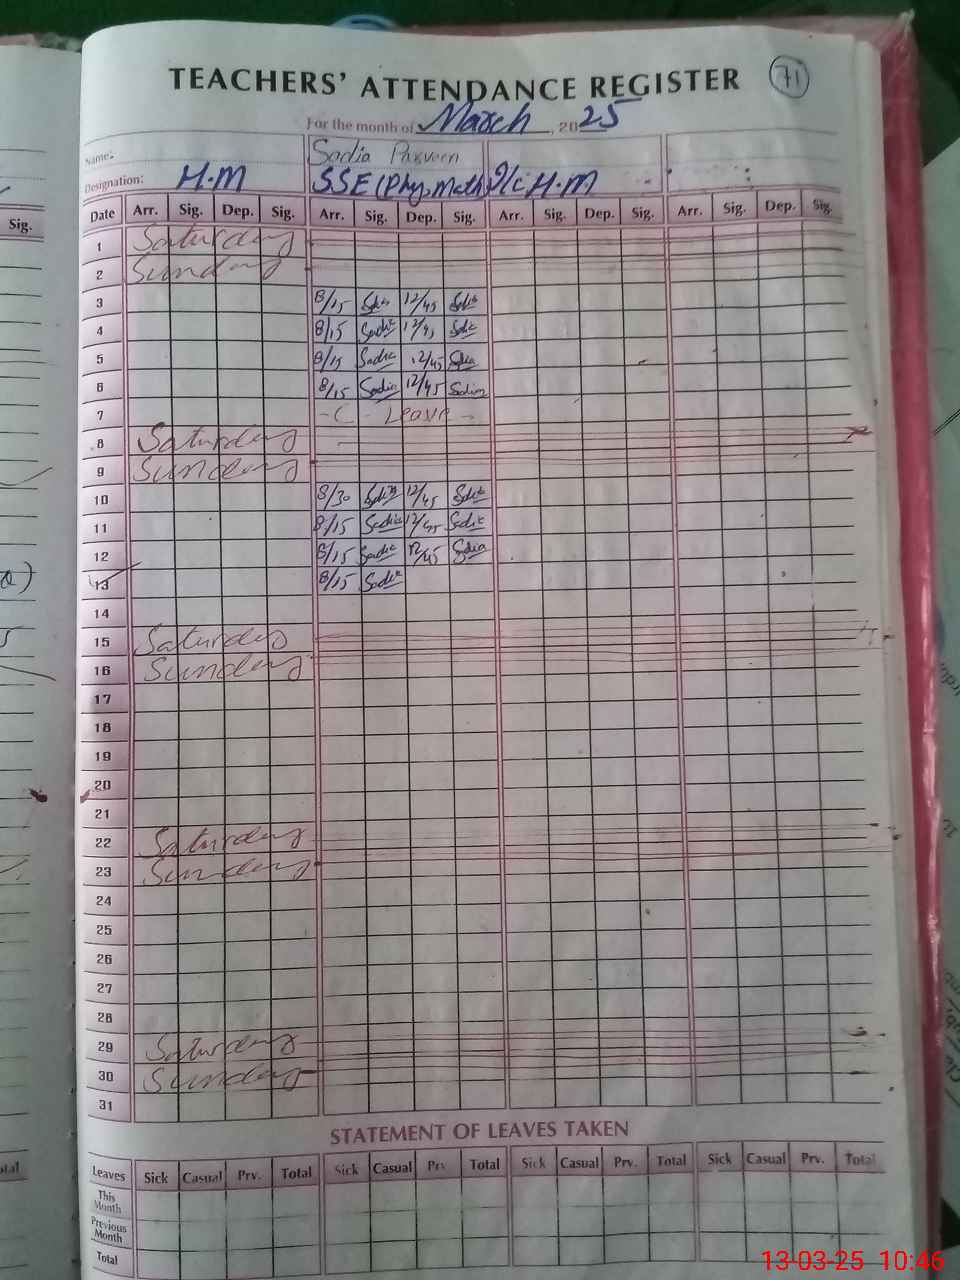 TEACHERS' ATTENDANCE REGISTER 71
For the month of March, 2025
Name: Sadia Parveen
Designation: H.M SSE (Phy, Math) I/c H.M
Sig. Date Arr. Sig. Dep. Sig. Arr. Sig. Dep. Sig. Arr. Sig. Dep. Sig. Arr. Sig. Dep. Sig.
1 Saturday
2 Sunday
3 8/15 Sadia 12/45 Sadia
4 8/15 Sadia 12/45 Sadia
5 8/15 Sadia 12/45 Sadia
6 8/15 Sadia 12/45 Sadia
7 - C - Leave -
8 Saturday
9 Sunday
10 8/30 Sadia 12/45 Sadia
11 8/15 Sadia 12/45 Sadia
12 8/15 Sadia 12/45 Sadia
13 8/15 Sadia
14
15 Saturday
16 Sunday
17
18
19
20
21
22 Saturday
23 Sunday
24
25
26
27
28
29 Saturday
30 Sunday
31
STATEMENT OF LEAVES TAKEN
Leaves Sick Casual Prv. Total Sick Casual Prv. Total Sick Casual Prv. Total Sick Casual Prv. Total
This Month
Previous Month
Total
13-03-25 10:46